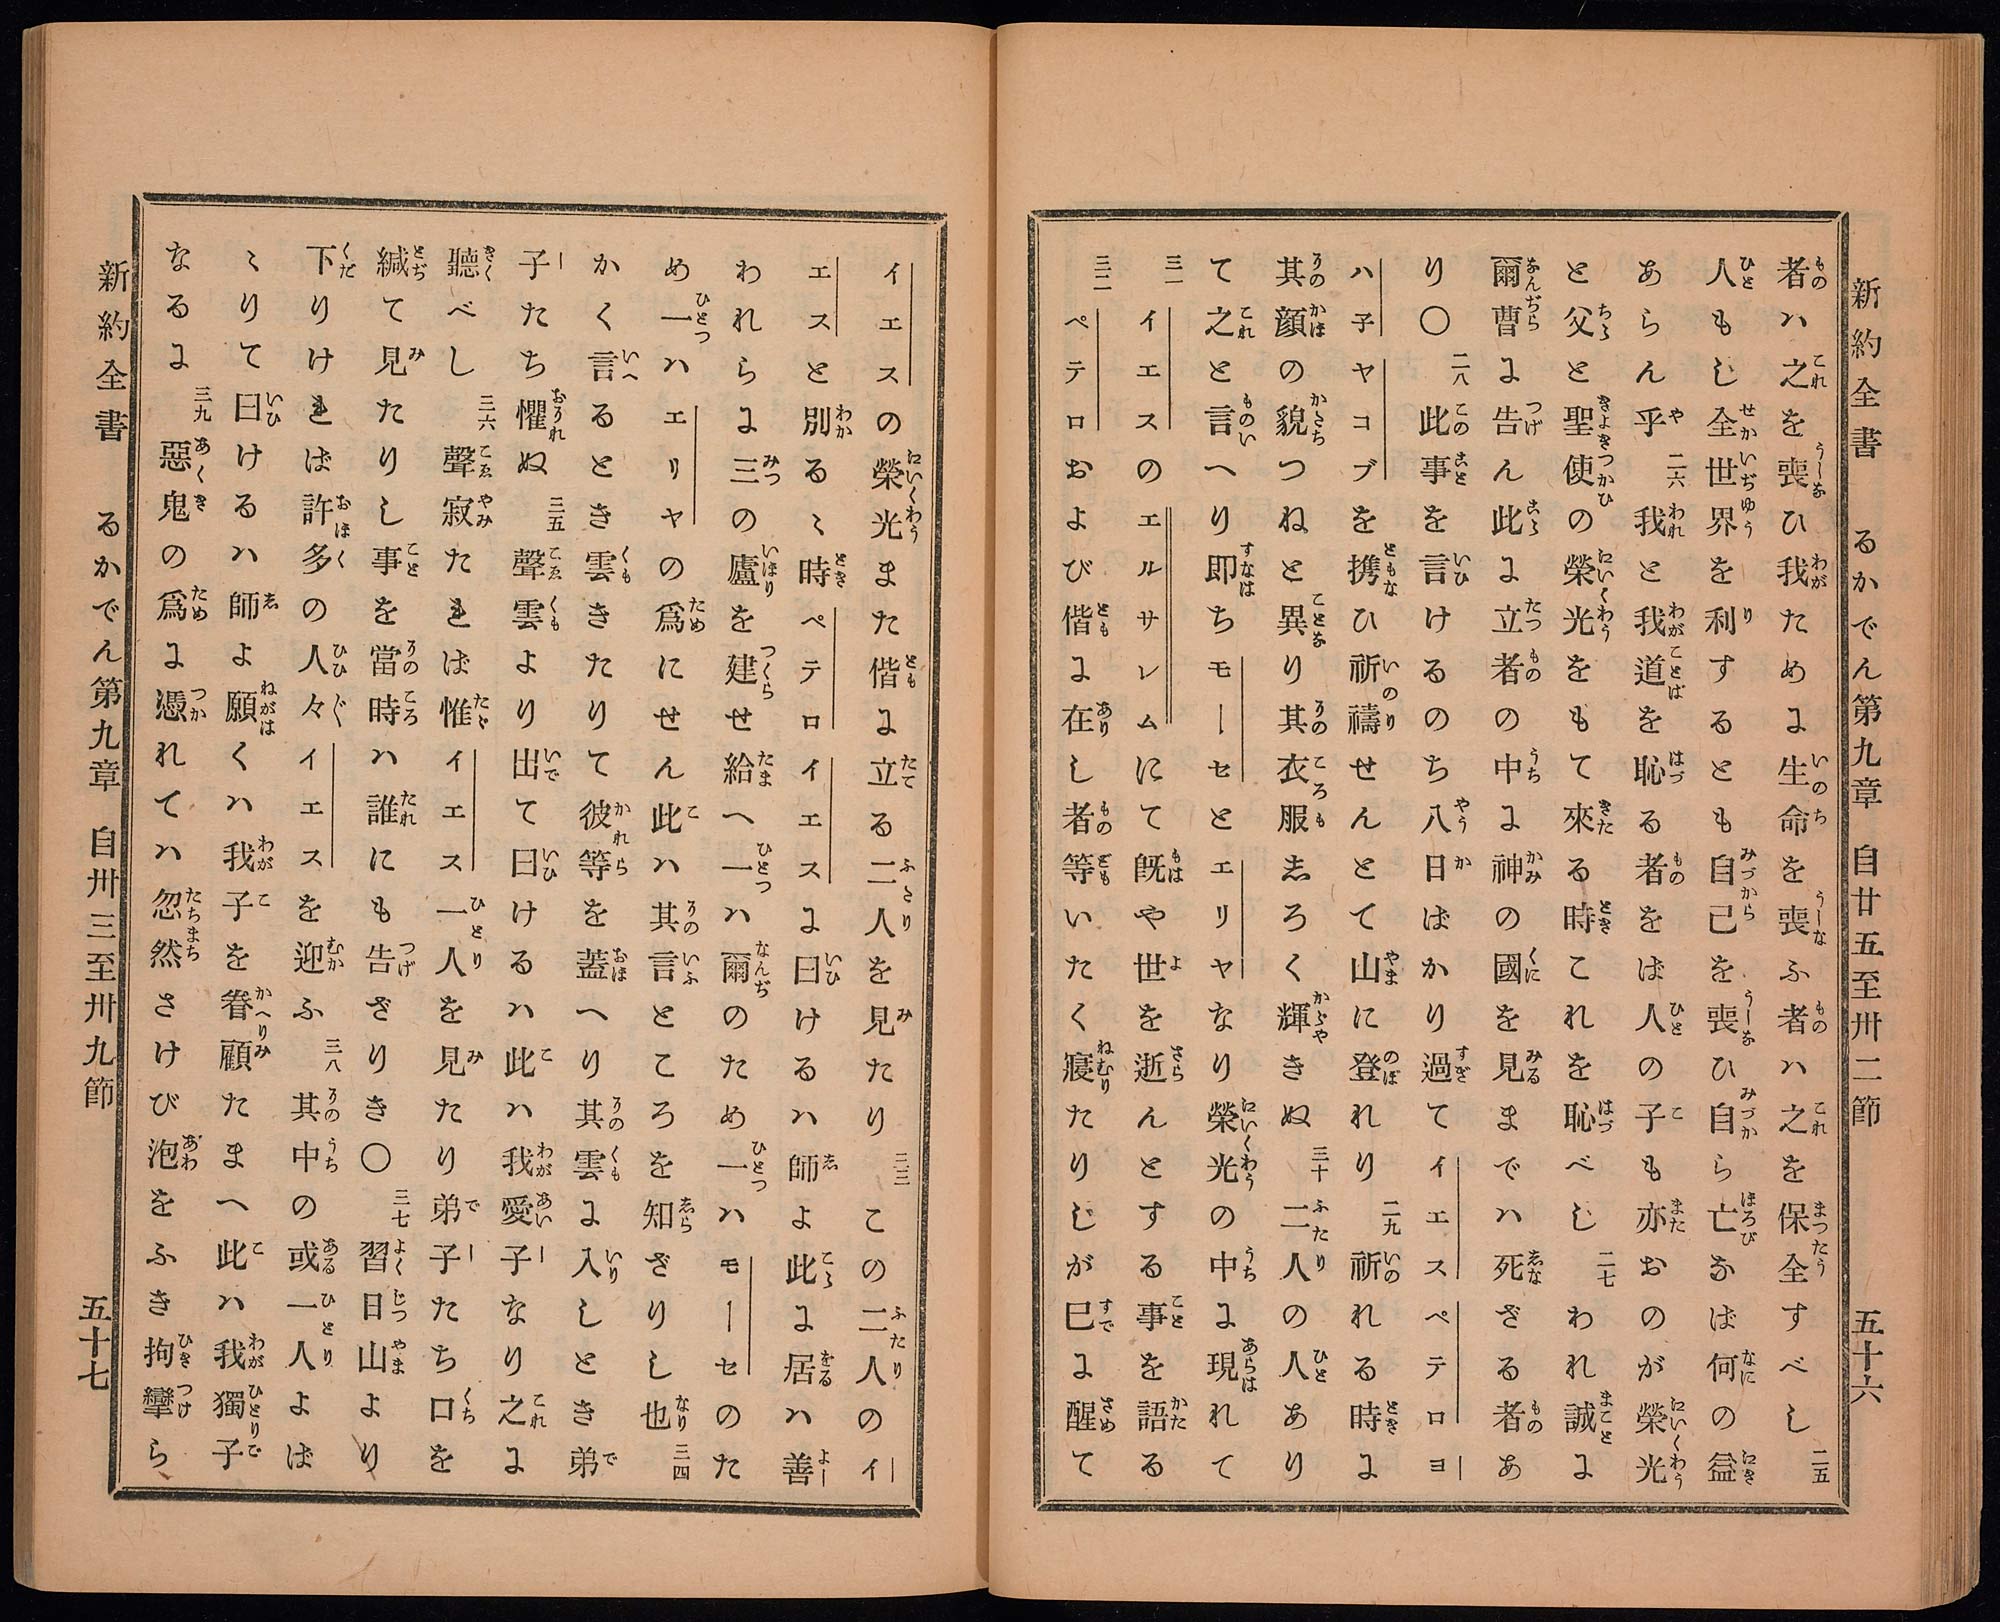 新約全書　るかでん第九章　自廿五至卅二節　五十六
者ハ之を喪ひ我ために生命を喪ふ者ハ之を保全すべし二五
人もし全世界を利するとも自己を喪ひ自ら亡なば何の益
あらん乎二六我と我道を恥る者をば人の子も亦おのが榮光
と父と聖使の榮光をもて來る時これを恥べし二七われ誠に
爾曹に告ん此に立者の中に神の國を見までハ死ざる者あ
り〇二八此事を言けるのち八日ばかり過てイエスペテロヨ
ハ子ヤコブを携ひ祈禱せんとて山に登れり二九祈れる時に
其顔の貌つねと異り其衣服志ろく輝きぬ三十二人の人あり
て之と言へり即ちモーセとエリヤなり榮光の中に現れて
三一イエスのエルサレムにて既や世を逝んとする事を語る
三二ペテロおよび偕に在し者等いたく寢たりしが已に醒て
イエスの榮光また偕に立る二人を見たり三三この二人のイ
エスと別るゝ時ペテロイエスに曰けるハ師よ此に居ハ善
われらに三の廬を建せ給へ一ハ爾のため一ハモーセのた
め一ハエリヤの爲にせん此ハ其言ところを知ざりし也三四
かく言るとき雲きたりて彼等を蓋へり其雲に入しとき弟
子たち懼ぬ三五聲雲より出て曰けるハ此ハ我愛子なり之に
聽べし三六聲寂たれば惟イエス一人を見たり弟子たち口を
緘て見たりし事を當時ハ誰にも告ざりき〇三七翌日山より
下りければ許多の人々イエスを迎ふ三八其中の或一人よば
ゝりて曰けるハ師よ願くハ我子を眷顧たまへ此ハ我獨子
なるに三九惡鬼の爲に憑れてハ忽然さけび泡をふき拘攣ら
新約全書　るかでん第九章　自卅三至卅九節　五十七